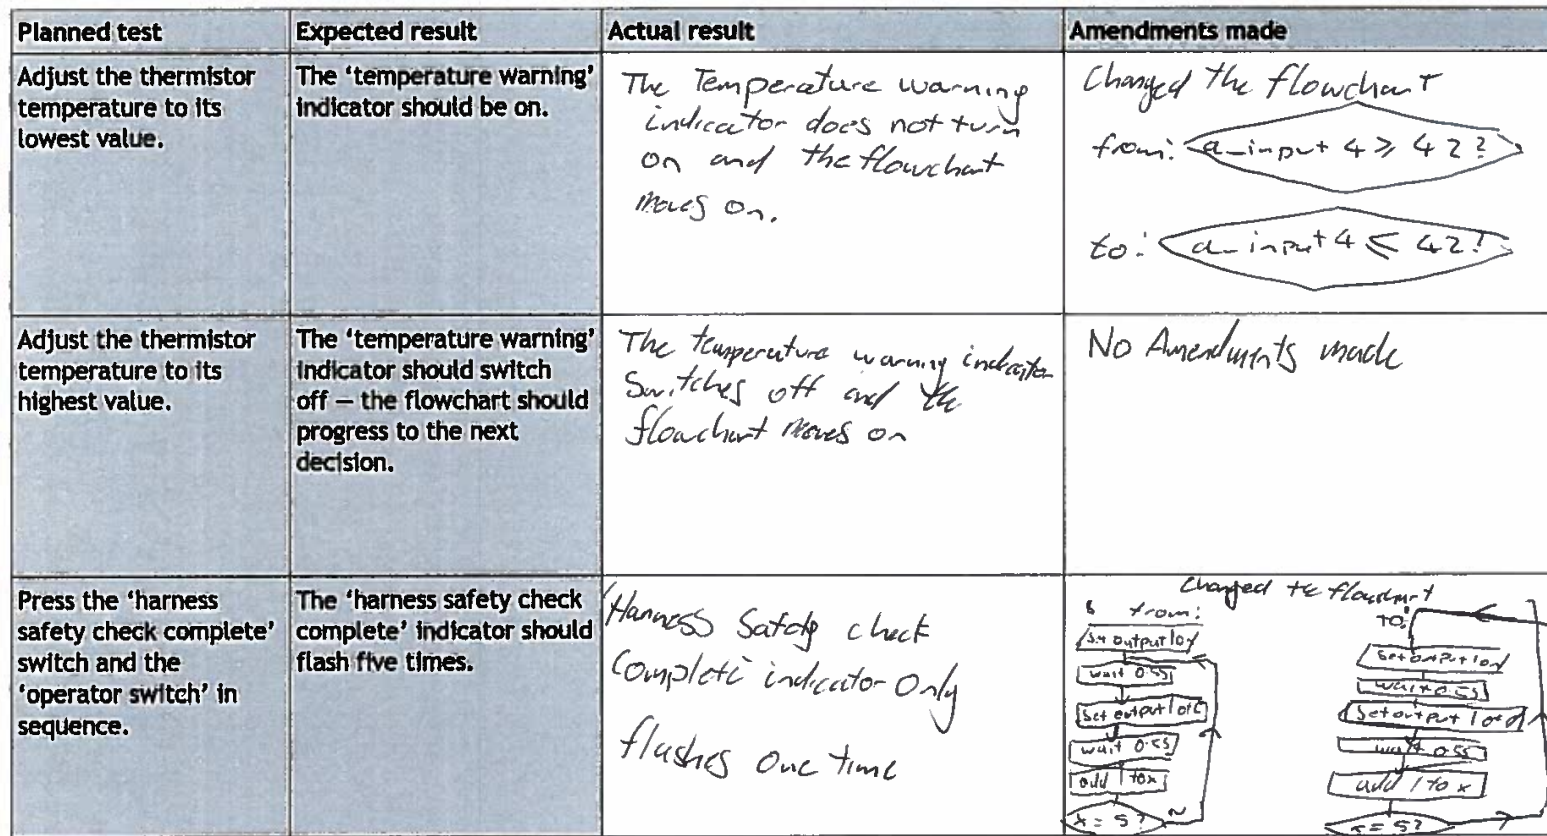 Planned test
Expected result
Actual result
Amendments made
Adjust the thermistor
temperature to its
lowest value.
The ‘temperature warning’
indicator should be on.
The Temperature warning
indicator does not turn
on and the flowchart
moves on.
Changed the flowchart
from: a_input 4 ⩾ 42?
to: a_input 4 ⩽ 42?
Adjust the thermistor
temperature to its
highest value.
The ‘temperature warning’
indicator should switch
off — the flowchart should
progress to the next
decision.
The temperature warning indicator
Switches off and the
flowchart moves on
No Amendments made
Press the ‘harness
safety check complete’
switch and the
‘operator switch’ in
sequence.
The ‘harness safety check
complete’ indicator should
flash five times.
Harness Safety check
Complete indicator Only
flashes One time
Changed the flowchart
from:
Set output 1 on
wait 0.5s
Set output 1 off
wait 0.5s
add 1 to x
x = 5?
N
to:
Set output 1 on
wait 0.5s
Set output 1 off
wait 0.5s
add 1 to x
x = 5?